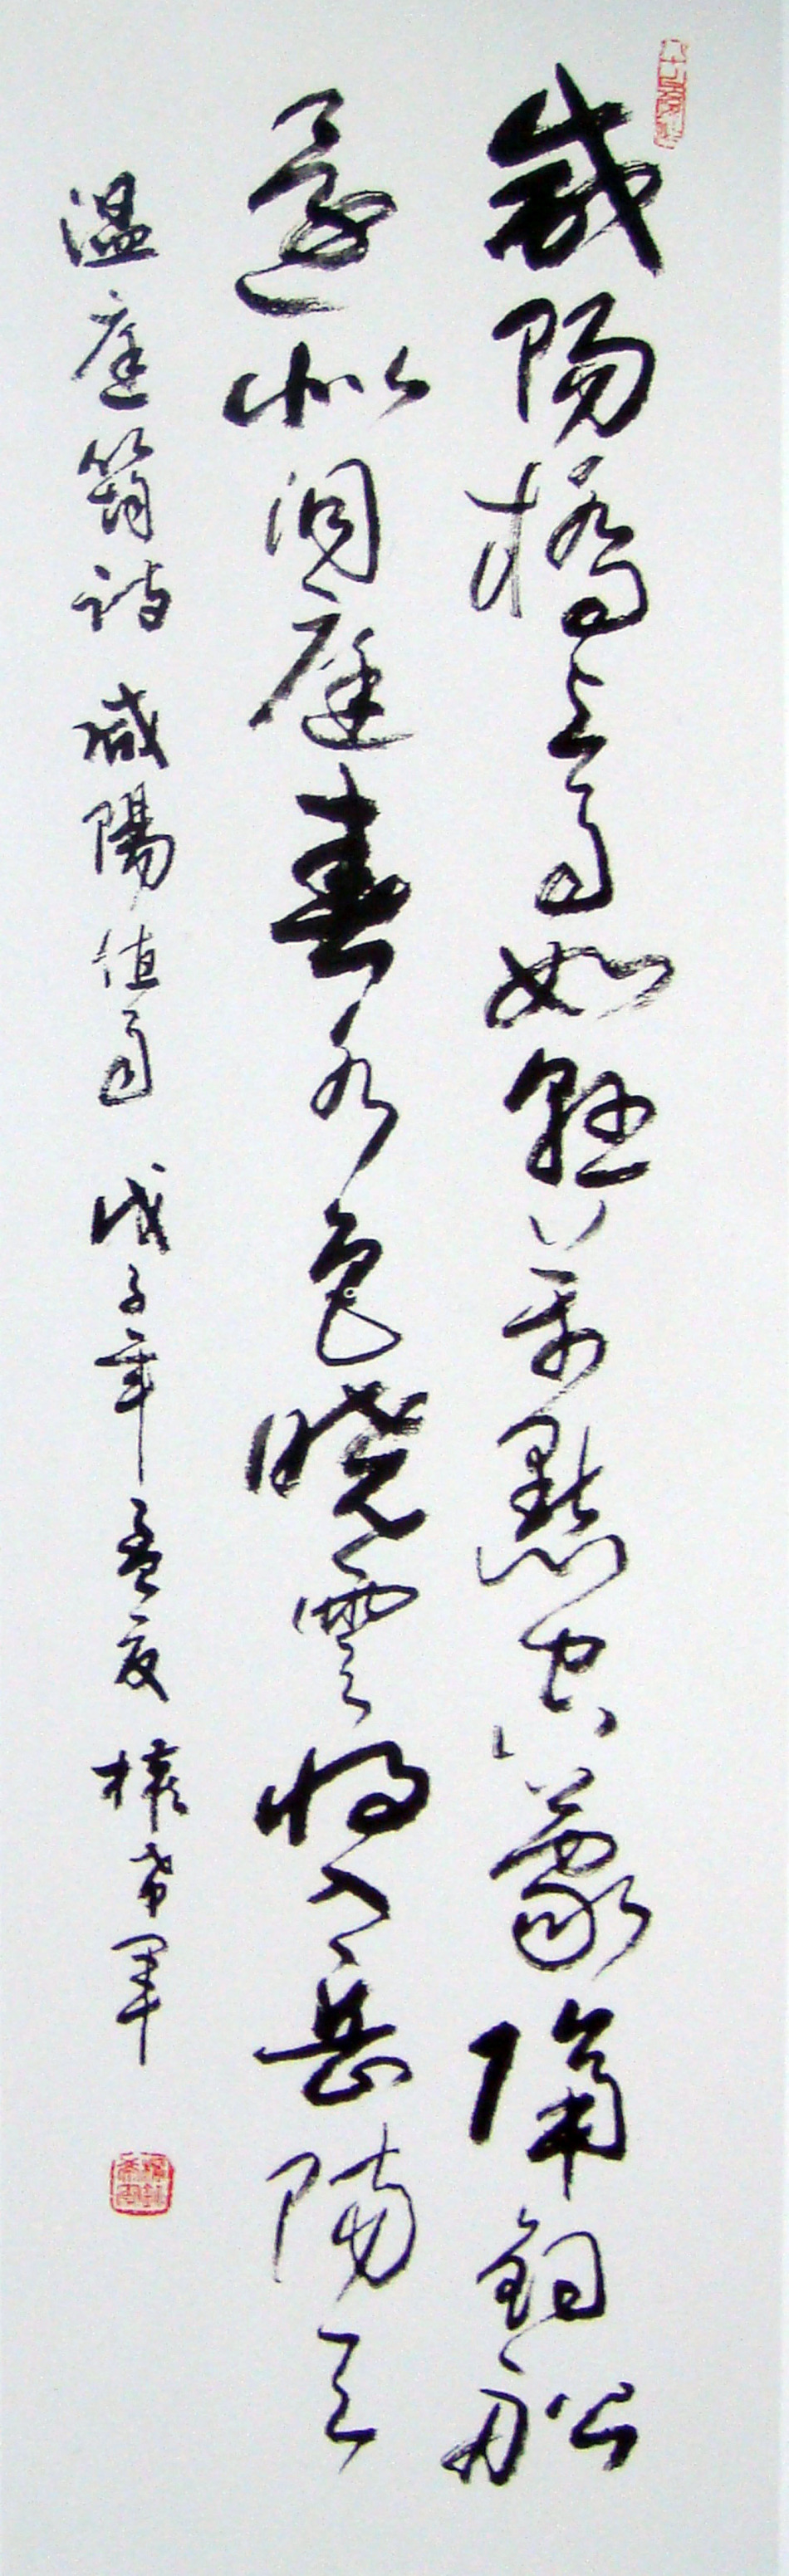 咸陽橋上雨如懸萬點空濛隔釣船
還似洞庭春水色曉雲將入岳陽天
温庭筠詩 咸陽值雨 戊子年孟夏 權希軍